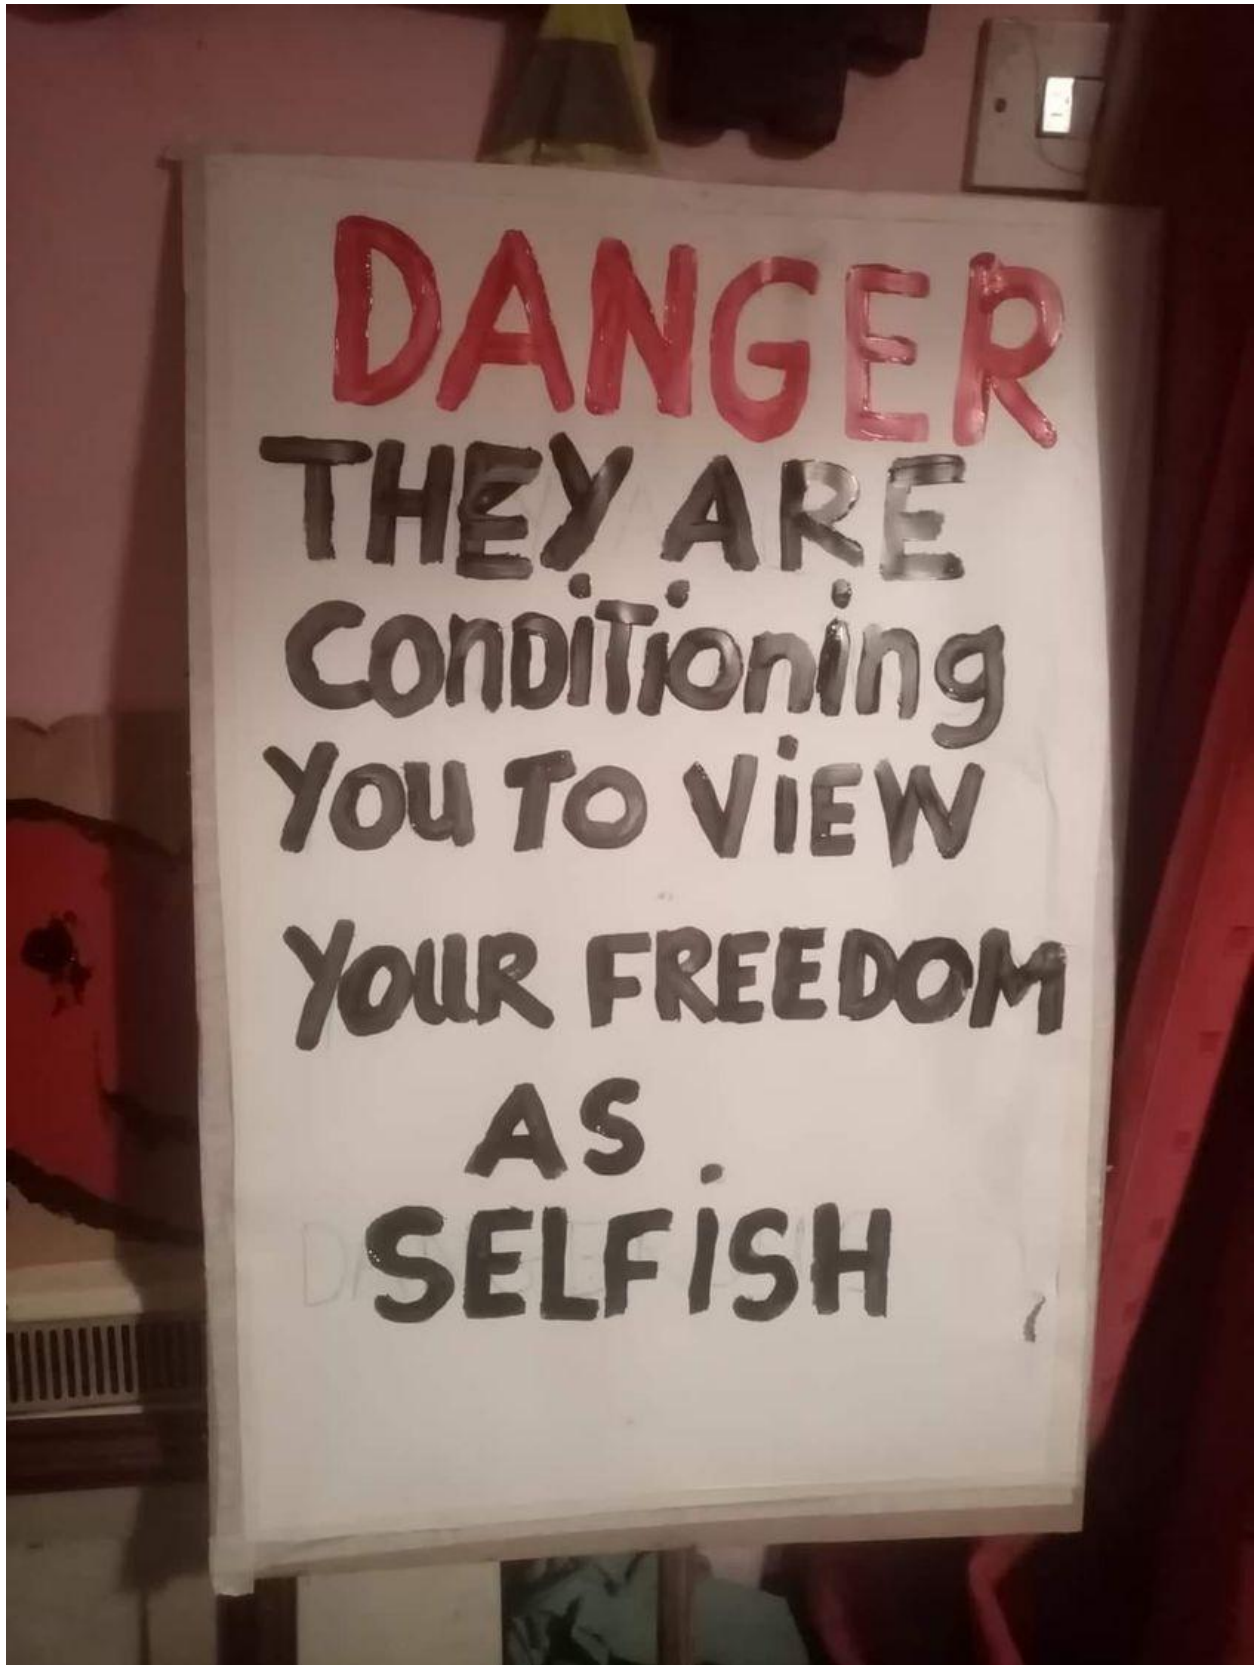 DANGER
THEY ARE
CONDiTioning
YOU TO ViEW
YOUR FREEDOM
AS
SELFiSH